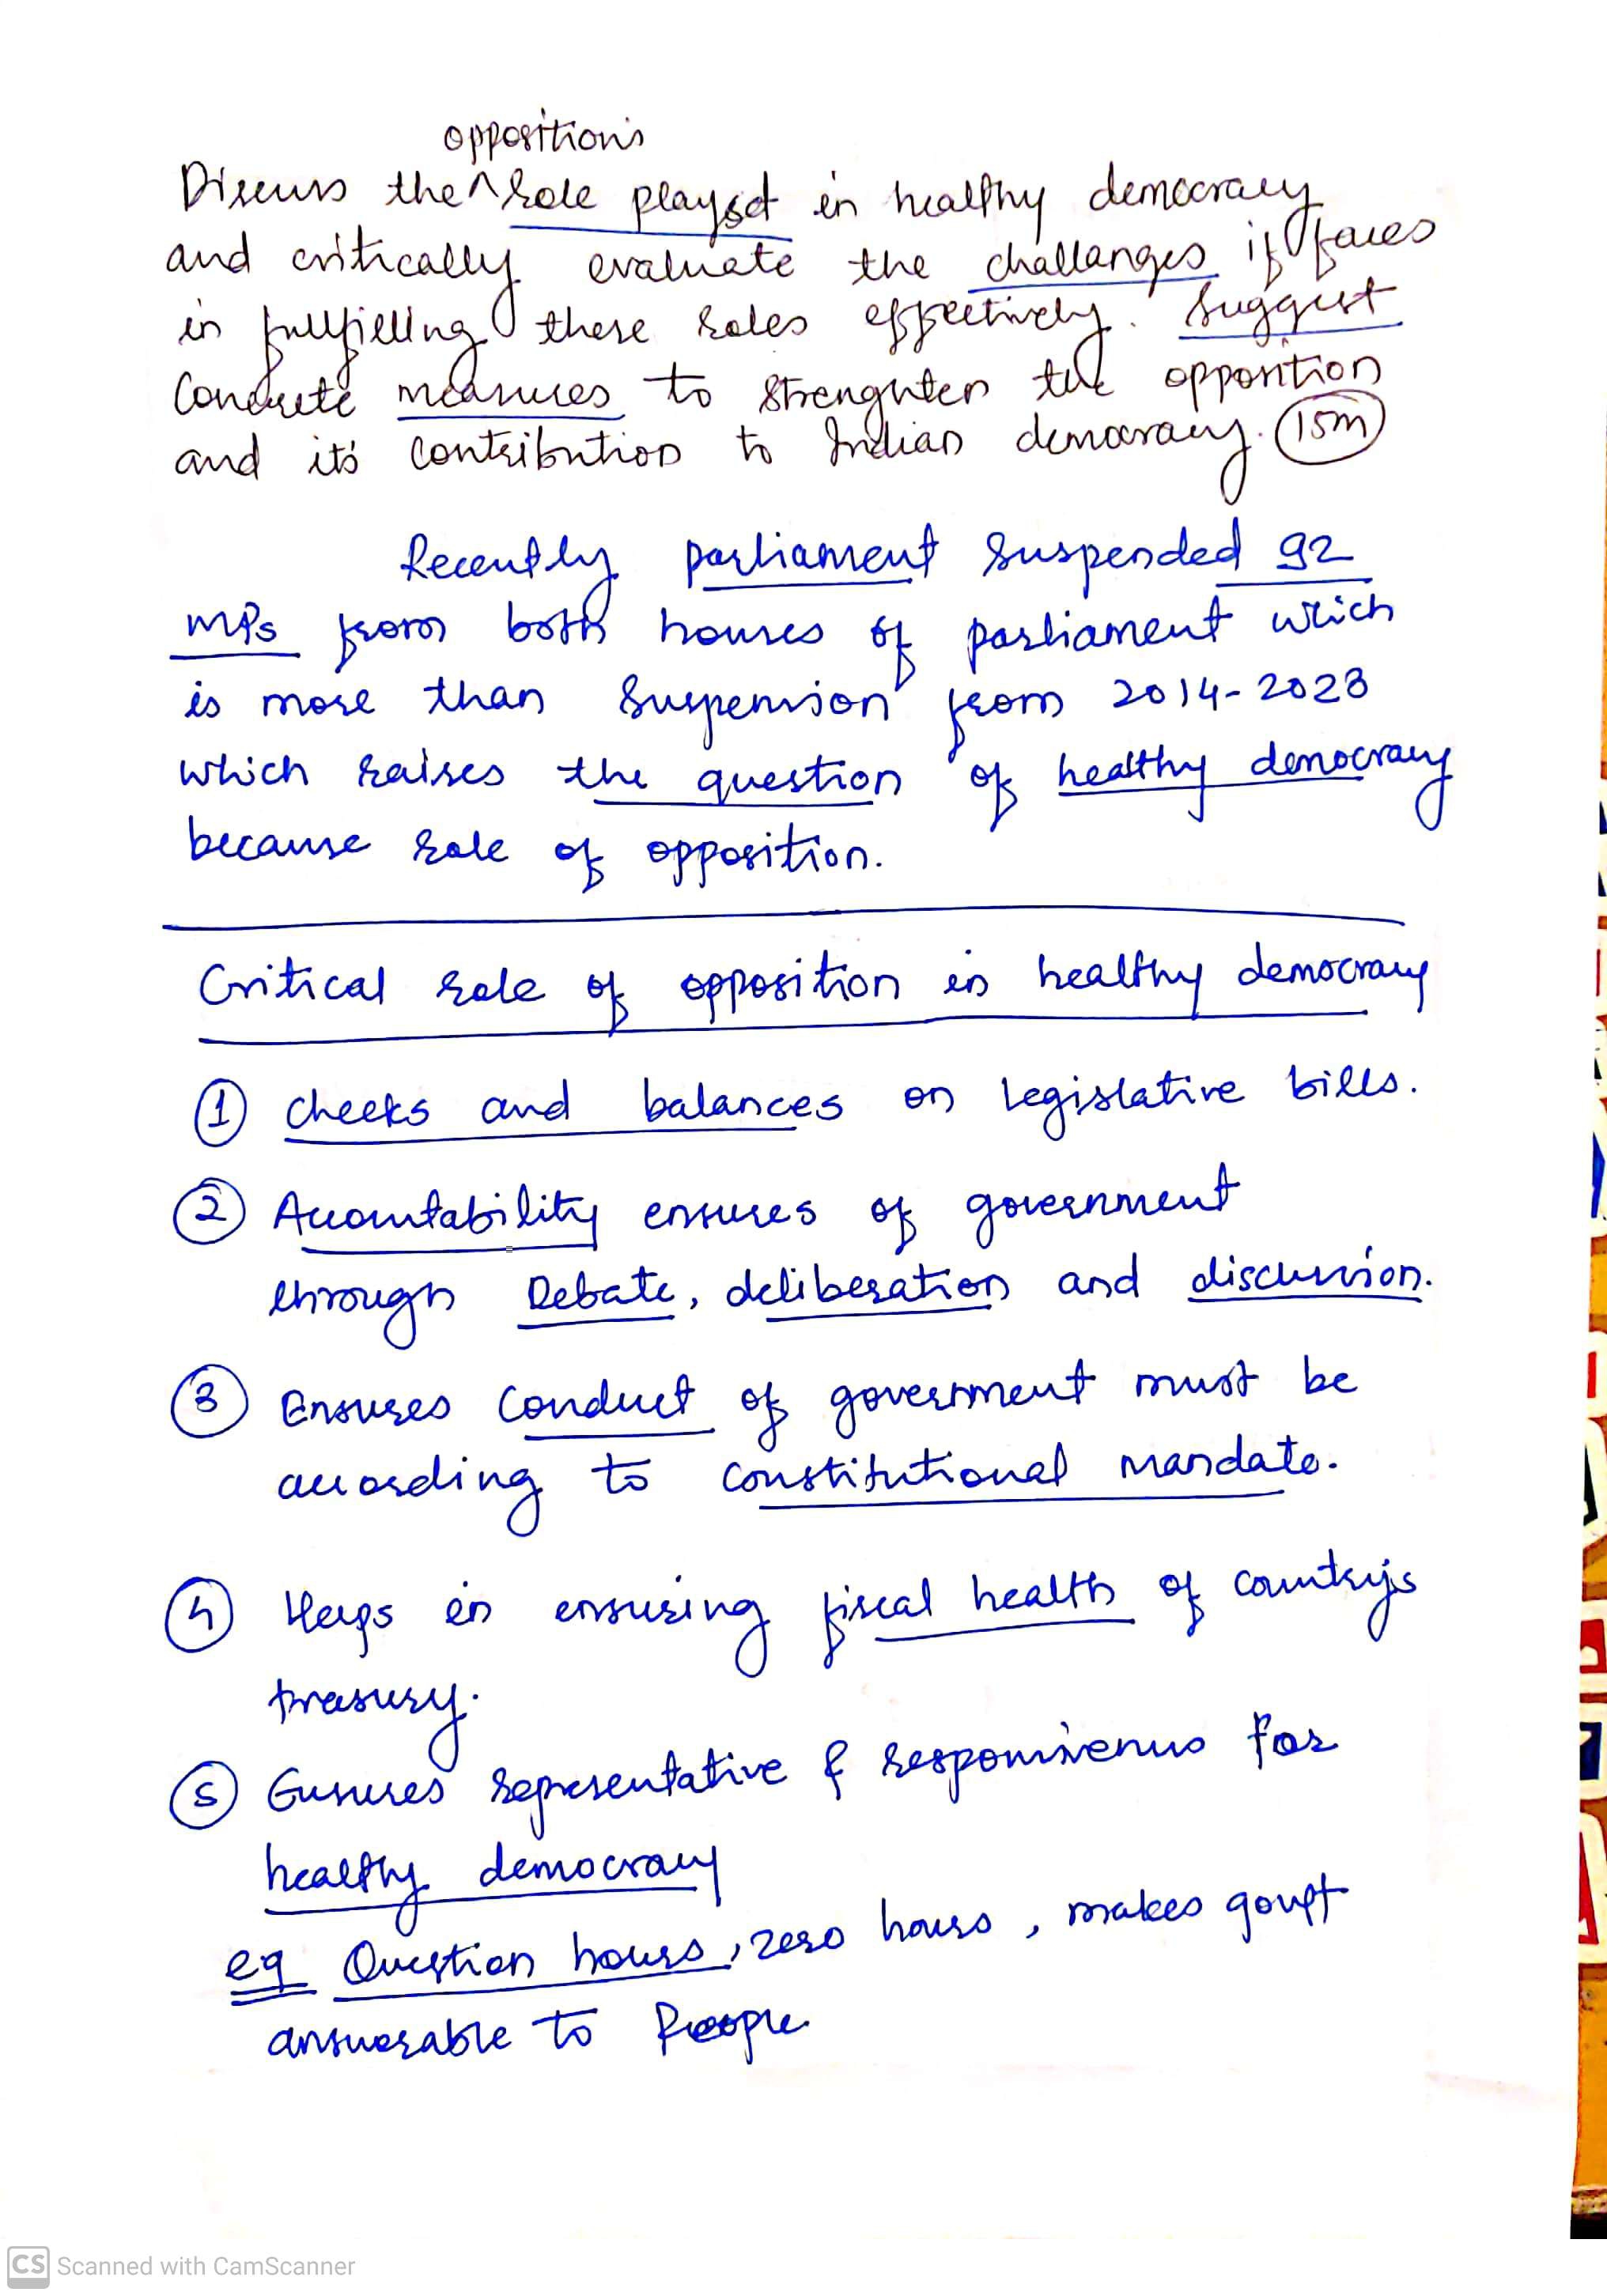 opposition's
Discuss the ^ role played in healthy democracy
and critically evaluate the challanges it faces
in fullfilling these roles effectively. Suggest
Concrete measures to strenghten the opposition
and it's contribution to Indian democracy. (15m)
Recently parliament suspended 92
MPs from both houses of parliament which
is more than suspension from 2014-2023
which raises the question of healthy democracy
because role of opposition.
Critical role of opposition in healthy democracy
① checks and balances on legislative bills.
② Accountability ensures of government
through Debate, deliberation and discussion.
③ Ensures conduct of government must be
according to constitutional mandate.
④ Helps in ensuring fiscal health of country's
treasury.
⑤ Ensures representative & responsiveness for
healthy democracy
eg Question hours, zero hours, makes govt
answerable to People
CS Scanned with CamScanner